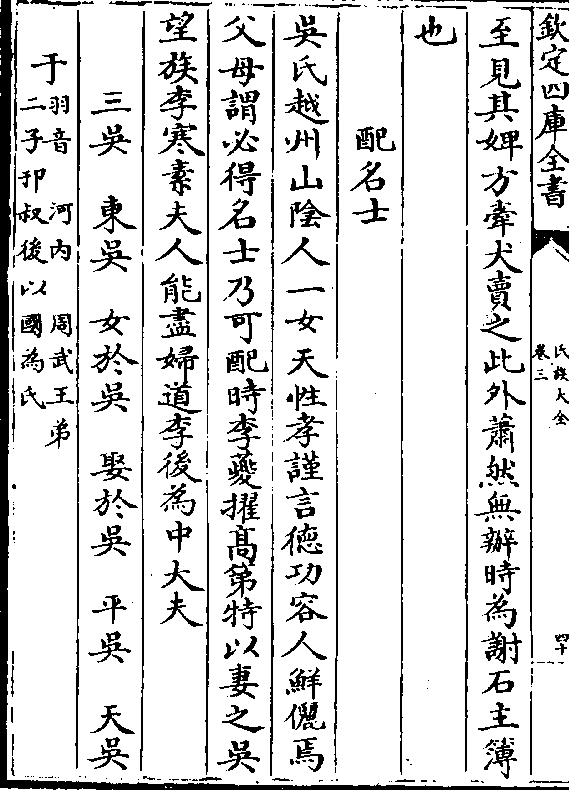 欽定四庫全書
氏族大全
卷三
四十
至見其婢方牽犬賣之此外蕭然無辦時為謝石主簿
也
配名士
吳氏越州山陰人一女天性孝謹言德功容人鮮儷焉
父母謂必得名士乃可配時李夔擢高第特以妻之吳
望族李寒素夫人能盡婦道李後為中大夫
三吳 東吳 女於吳 娶於吳 平吳 天吳
于
羽音 河内 周武王弟
二子邘叔後以國為氏